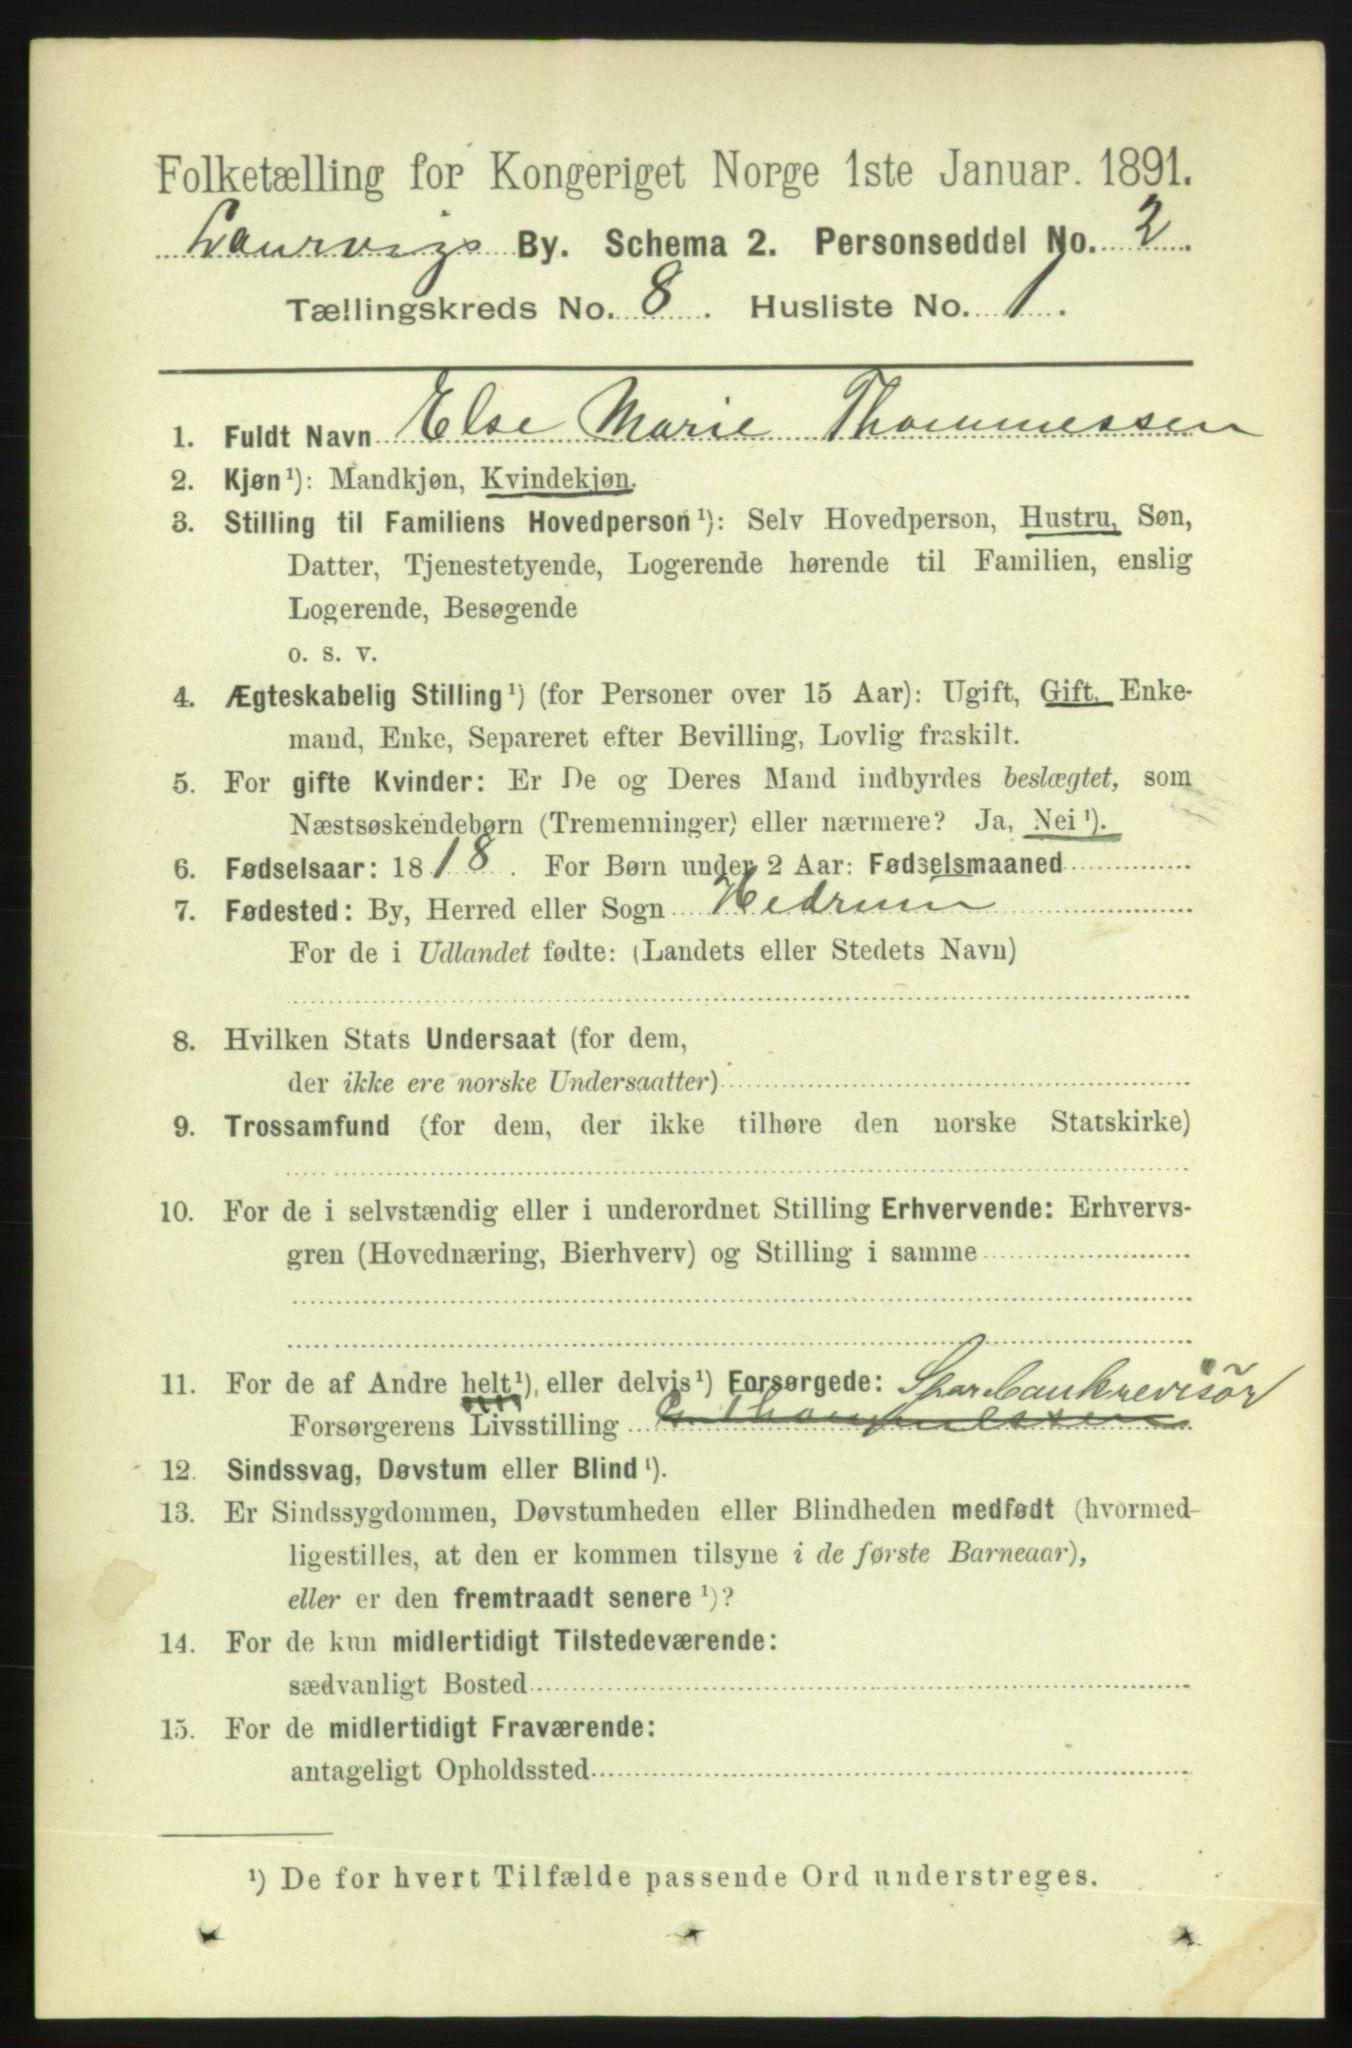 Folketælling for Kongeriget Norge 1ste Januar. 1891.
Laurvigs By. Schema 2. Personseddel No. 2.
Tællingskreds No. 8. Husliste No. 1.
1. Fuldt Navn Else Marie Thommessen
2. Kjøn¹): Mandkjøn, Kvindekjøn.
3. Stilling til Familiens Hovedperson¹): Selv Hovedperson, Hustru, Søn,
Datter, Tjenestetyende, Logerende hørende til Familien, enslig
Logerende, Besøgende
o. s. v.
4. Ægteskabelig Stilling¹) (for Personer over 15 Aar): Ugift, Gift, Enke-
mand, Enke, Separeret efter Bevilling, Lovlig fraskilt.
5. For gifte Kvinder: Er De og Deres Mand indbyrdes beslægtet, som
Næstsøskendebørn (Tremenninger) eller nærmere? Ja, Nei¹).
6. Fødselsaar: 1818. For Børn under 2 Aar: Fødselsmaaned
7. Fødested: By, Herred eller Sogn Hedrum
For de i Udlandet fødte: (Landets eller Stedets Navn)
8. Hvilken Stats Undersaat (for dem,
der ikke ere norske Undersaatter)
9. Trossamfund (for dem, der ikke tilhøre den norske Statskirke)
10. For de i selvstændig eller i underordnet Stilling Erhvervende: Erhvervs-
gren (Hovednæring, Bierhverv) og Stilling i samme
11. For de af Andre helt¹), eller delvis¹) Forsørgede: Sparebankrevisör
Forsørgerens Livsstilling
12. Sindssvag, Døvstum eller Blind¹).
13. Er Sindssygdommen, Døvstumheden eller Blindheden medfødt (hvormed-
ligestilles, at den er kommen tilsyne i de første Barneaar),
eller er den fremtraadt senere¹)?
14. For de kun midlertidigt Tilstedeværende:
sædvanligt Bosted
15. For de midlertidigt Fraværende:
antageligt Opholdssted
¹) De for hvert Tilfælde passende Ord understreges.